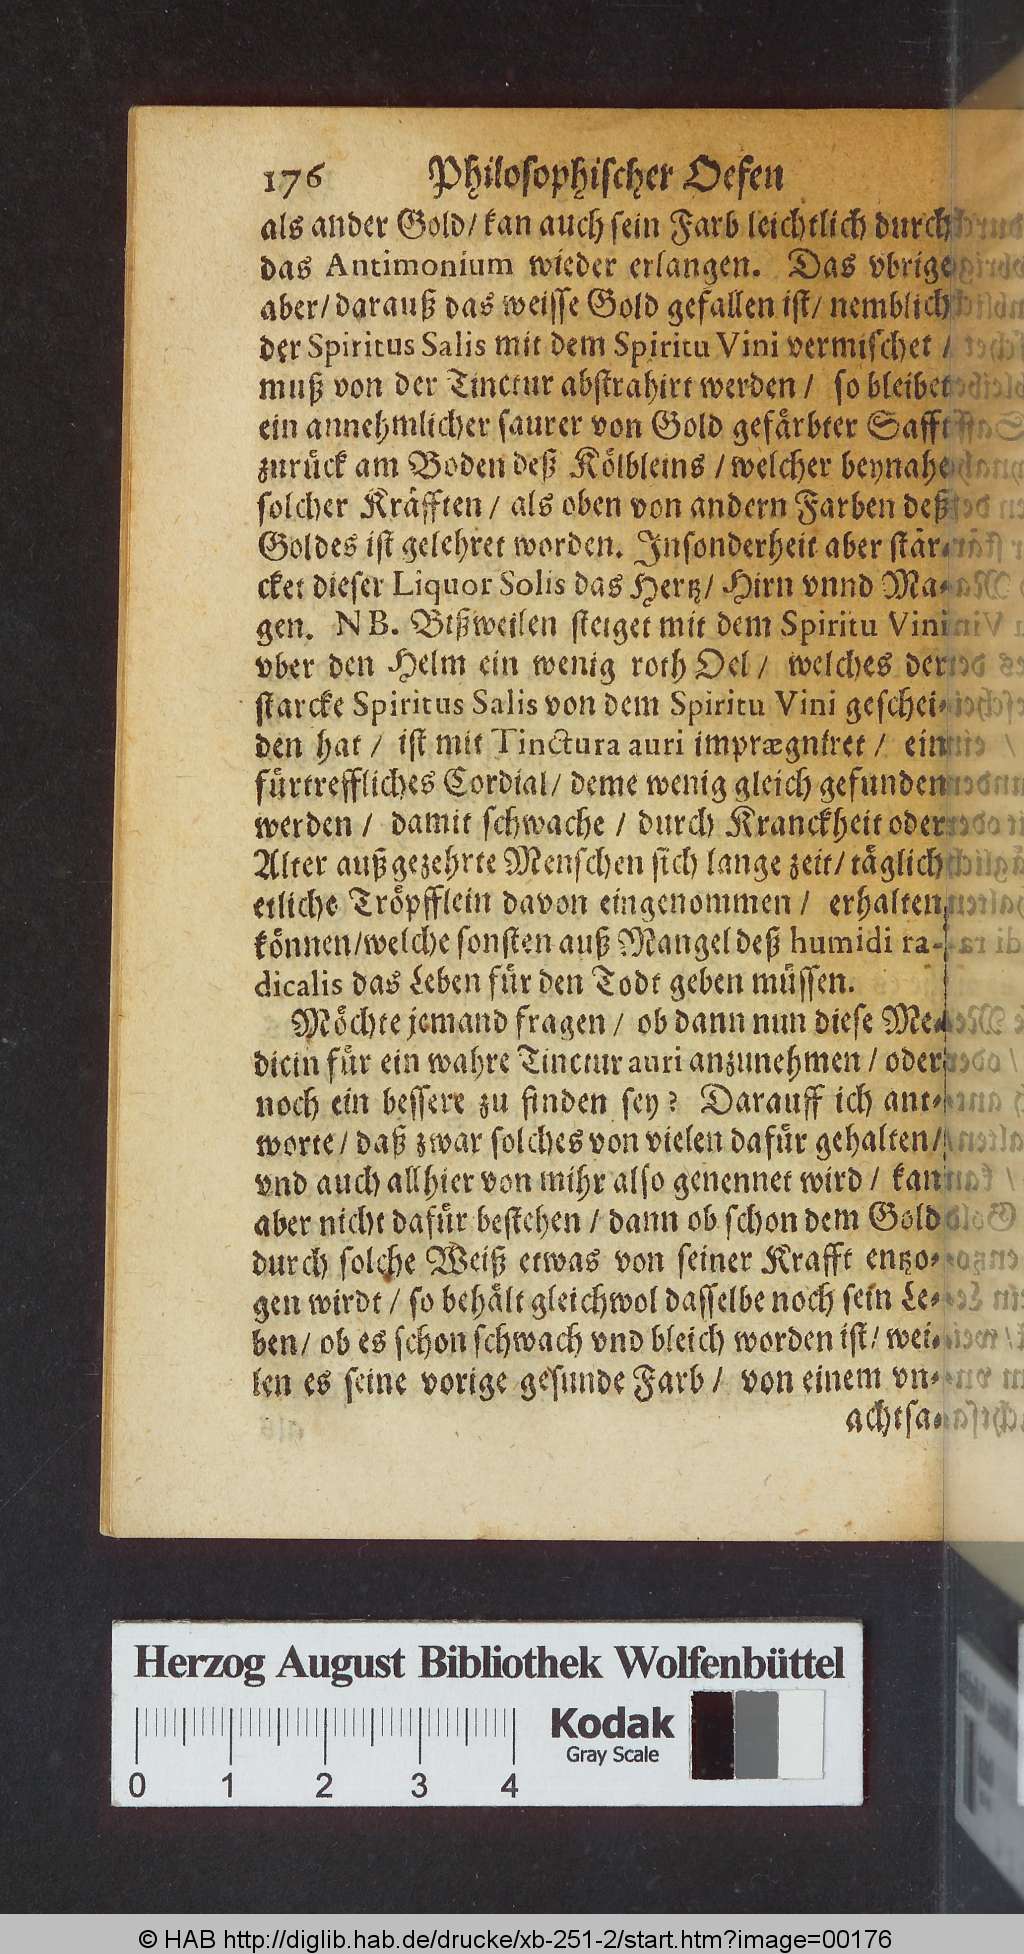 176 Philosophischer Oefen
als ander Gold/ kan auch sein Farb leichtlich durch
das Antimonium wieder erlangen. Das vbrige
aber/ darauß das weisse Gold gefallen ist/ nemblich
der Spiritus Salis mit dem Spiritu Vini vermischet /
muß von der Tinctur abstrahirt werden / so bleibet
ein annehmlicher saurer von Gold gefärbter Safft
zurück am Boden deß Kölbleins / welcher beynahe
solcher Kräfften / als oben von andern Farben deß
Goldes ist gelehret worden. Insonderheit aber stär-
cket dieser Liquor Solis das Hertz/ Hirn vnnd Ma-
gen. NB. Bißweilen steiget mit dem Spiritu Vini
vber den Helm ein wenig roth Oel / welches der
starcke Spiritus Salis von dem Spiritu Vini geschei-
den hat / ist mit Tinctura auri imprægniret / ein
fürtreffliches Cordial/ deme wenig gleich gefunden
werden / damit schwache / durch Kranckheit oder
Alter außgezehrte Menschen sich lange zeit/ täglich
etliche Tröpfflein davon eingenommen / erhalten
können/welche sonsten auß Mangel deß humidi ra-
dicalis das Leben für den Todt geben müssen.
Möchte jemand fragen / ob dann nun diese Me-
dicin für ein wahre Tinctur auri anzunehmen / oder
noch ein bessere zu finden sey? Darauff ich ant-
worte / daß zwar solches von vielen dafür gehalten/
vnd auch allhier von mihr also genennet wird / kan
aber nicht dafür bestehen / dann ob schon dem Gold
durch solche Weiß etwas von seiner Krafft entzo-
gen wirdt / so behält gleichwol dasselbe noch sein Le-
ben/ ob es schon schwach vnd bleich worden ist/ wei-
len es seine vorige gesunde Farb / von einem vn-
achtsa-
Herzog August Bibliothek Wolfenbüttel
Kodak
Gray Scale
0 1 2 3 4
© HAB http://diglib.hab.de/drucke/xb-251-2/start.htm?image=00176